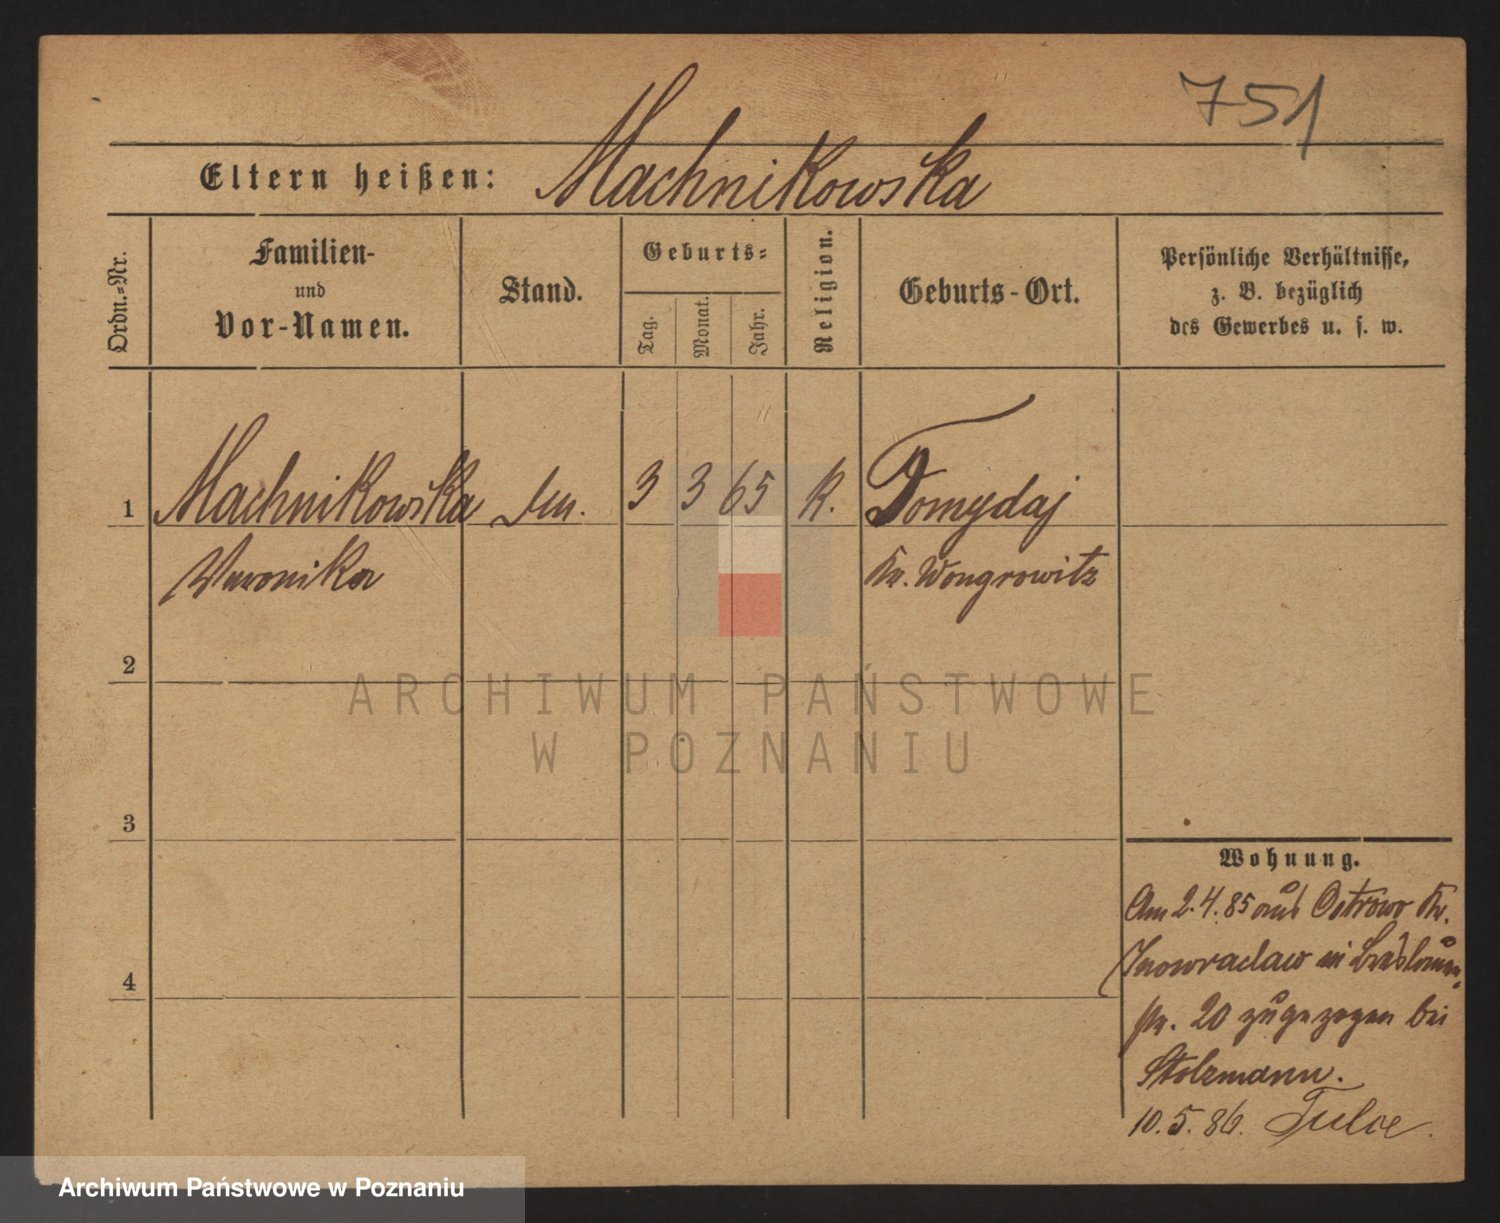 751
Eltern heißen: Machnikowska
Ordn.-Nr.
Familien-
und
Vor-Namen.
Stand.
Geburts-
Tag.
Monat.
Jahr.
Religion.
Geburts-Ort.
Persönliche Verhältnisse,
z. B. bezüglich
des Gewerbes u. s. w.
1 Machnikowska 3 3 65 K. Tomydaj
Veronika Kr. Wongrowitz
2
ARCHIWUM PAŃSTWOWE
W POZNANIU
3
Wohnung.
Am 2.4.85 aus Ostrowo Kr.
Inowraclaw in
4
str. 20 zugezogen bei
Stolzmann.
10.5.86. Tulce.
Archiwum Państwowe w Poznaniu